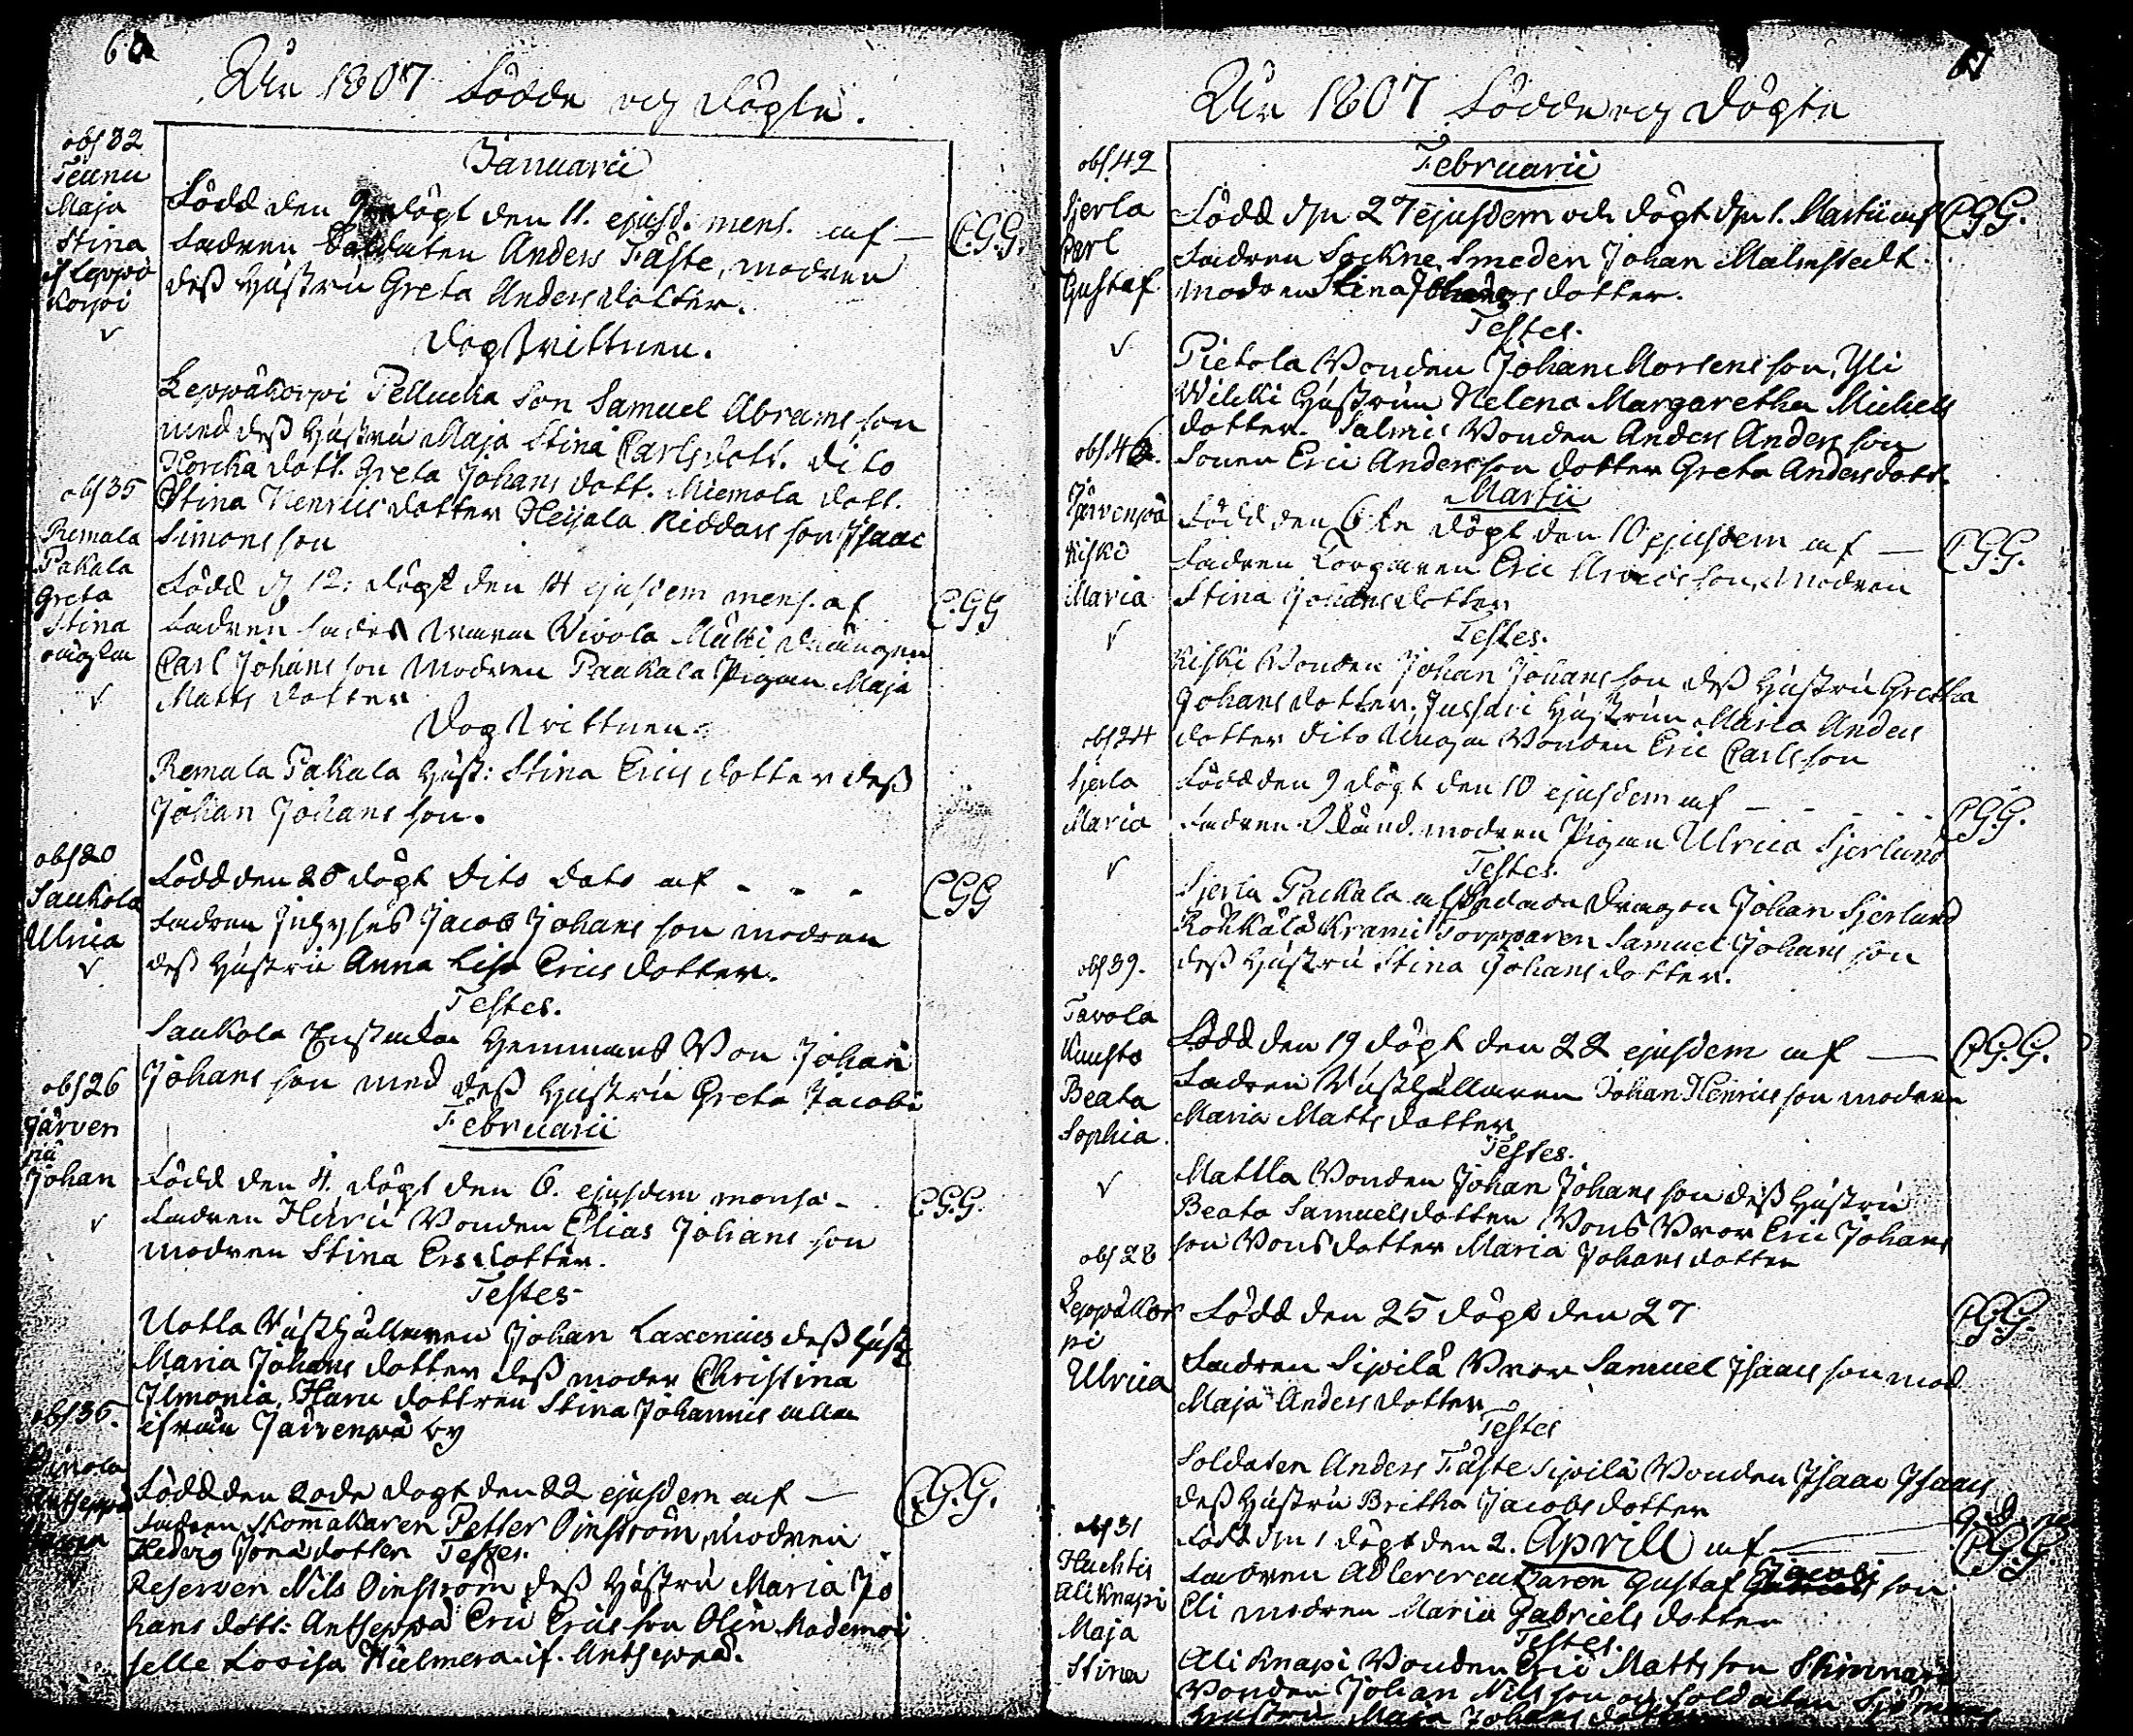 60
An 1807 Födde och Döpte.
Januarii
obs 32
Teunu
Maja
Stina
if Leppä
Korpi
Född den 9 Döpt den 11. ejusd. mens. af — C.G.G.
Fadren Soldaten Anders Fäste, modren
dess Hustru Greta Anders dotter.
Dopvittnen.
Leppäkorpi Pellucka Son Samuel Abrams son
med dess Hustru Maja Stina Carls dott. dito
Horcka dott. Greta Johans dott. Miemola dott.
Stina Henrics dotter Heijala Riddars son Isaac
Simons son
obs 35
Remala
Pakala
Greta
Stina
oägta
Född d. 12: Döpt den 14 ejusdem mens. af C.G.G
Fadren Wivola Mälki Drängen
Carl Johans son Modren Paukala Pigan Maja
Matts dotter
Dopvittnen.
Remala Pakala Hust: Stina Erics dotter dess
Johan Johans son.
obs 20
Saukola
Ulrica
Född den 25 Döpt Dito Dato af - - - CGG
Fadren Inhyses Jacob Johans son modren
dess Hustru Anna Lisa Erics dotter.
Testes.
Saukola Hemmans Bon Johan
Johans son med dess Hustru Greta Jacobi
Februarii
obs 26
Järven
pä
Johan
Född den 4. Döpt den 6. ejusdem - C.G.G.
Fadren Haru Bonden Elias Johans son
modren Stina Ersdotter.
Testes
Uotla Rusthållaren Johan Laxenius dess Hust
Maria Johans dotter dess moder Christina
Ilmonia, Haru dottren Stina Johannis alla
ifrån Järvenpä by
obs 36.
Antseppä
Född den 20de Döpt den 22 ejusdem af — C.G.G.
Fadren Skomakaren Petter Oinström, Modren
Hedvig Jonä dotter Testes.
Reserven Nils Oinström dess Hustru Maria Jo
hans dott: Antseppä Eric Erics son Olin Mademoi
selle Lovisa Hülmera if. Antseppä.
61
An 1807 Födde och Döpte
Februarii
obs 42
Sjerla
Carl
Gustaf
Född den 27 ejusdem och Döpt den 1. Martii af C.G.G.
Fadren Sockne Smeden Johan Malmstedt
modren Stina dotter.
Testes.
Pietola Bonden Johan Mortens son, Yli
Wilcki Hustrun Helena Margaretha Michels
dotter. Salmis Bonden Anders Anders son
Sonen Eric Andersson dotter Greta Andersdott.
Martii
obs 46.
Järvenpä
Kiski
Maria
Född den 6te Döpt den 10 ejusdem af — CGG.
Fadren Torparen Eric son, Modren
Stina Johansdotter
Testes.
Kiski Bonden Johan Johans son dess Hustru Gretha
Johansdotter, Hustrun Maria Anders
dotter Dito Bonden Eric Carls son
obs 24
Sjerla
Maria
Född den 9 Döpt den 10 ejusdem af - - - CGG.
Fadren Okänd. modren Pigan Ulrica Sjerlund
Testes.
Sjerla Packala Dragon Johan Sjerlund
Rohkala Krami Torpparen Samuel Johans son
dess Hustru Stina Johans dotter.
obs 39.
Tavola
Knusto
Beata
Sophia
Född den 19 Döpt den 22 ejusdem af — C.G.G.
Fadren Rusthållaren Johan Henrics son modren
Maria Matts dotter
Testes.
Mattla Bonden Johan Johans son dess Hustru
Beata Samuelsdotter Bons Bror Eric Johans
son Bons dotter Maria Johans dotter
obs 28
Leppäkor
pi
Ulrica
Född den 25 Döpt den 27 CGG.
Fadren Sipilä Bror Samuel Isaacs son mod
Maja Anders dotter
Testes
Soldaten Anders Fäste Sipilä Bonden Isaac Isaacs
dess Hustru Britha Jacobs dotter
obs 31
Huchtis
Ali Knapi
Maja
Stina
Född den 1 Döpt den 2. Aprill af — CGG.
Fadren Gustaf Jacobi son
Eli modren Maria Gabriels dotter
Testes.
Ali Knapi Bonden Eric Matts son
Bonden Johan Nils son och Soldaten
Hustru Maja Johans